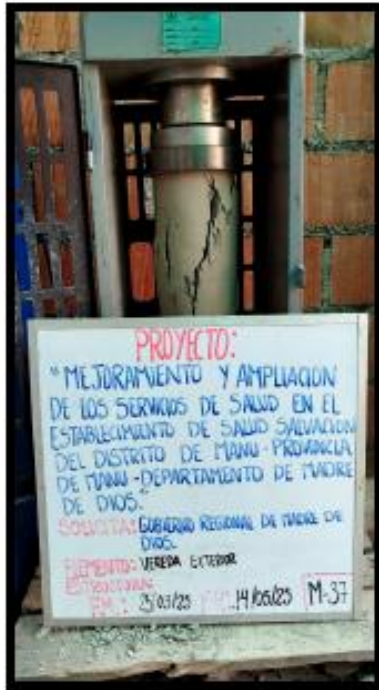 PROYECTO:
"MEJORAMIENTO Y AMPLIACION
DE LOS SERVICIOS DE SALUD EN EL
ESTABLECIMIENTO DE SALUD SALVACION
DEL DISTRITO DE MANU - PROVINCIA
DE MANU - DEPARTAMENTO DE MADRE
DE DIOS."
SOLICITA: GOBIERNO REGIONAL DE MADRE DE
DIOS.
ELEMENTO: VEREDA EXTERIOR
ESTRUCTURA:
14/05/25 M-37